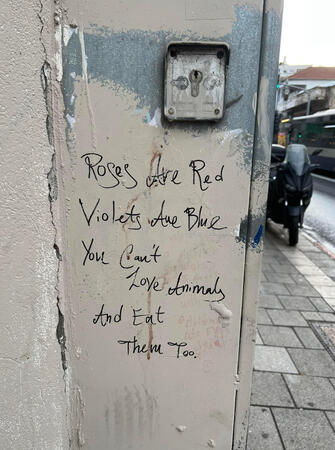 Roses Are Red
Violets Are Blue
You Can't
Love Animals
And Eat
Them Too.